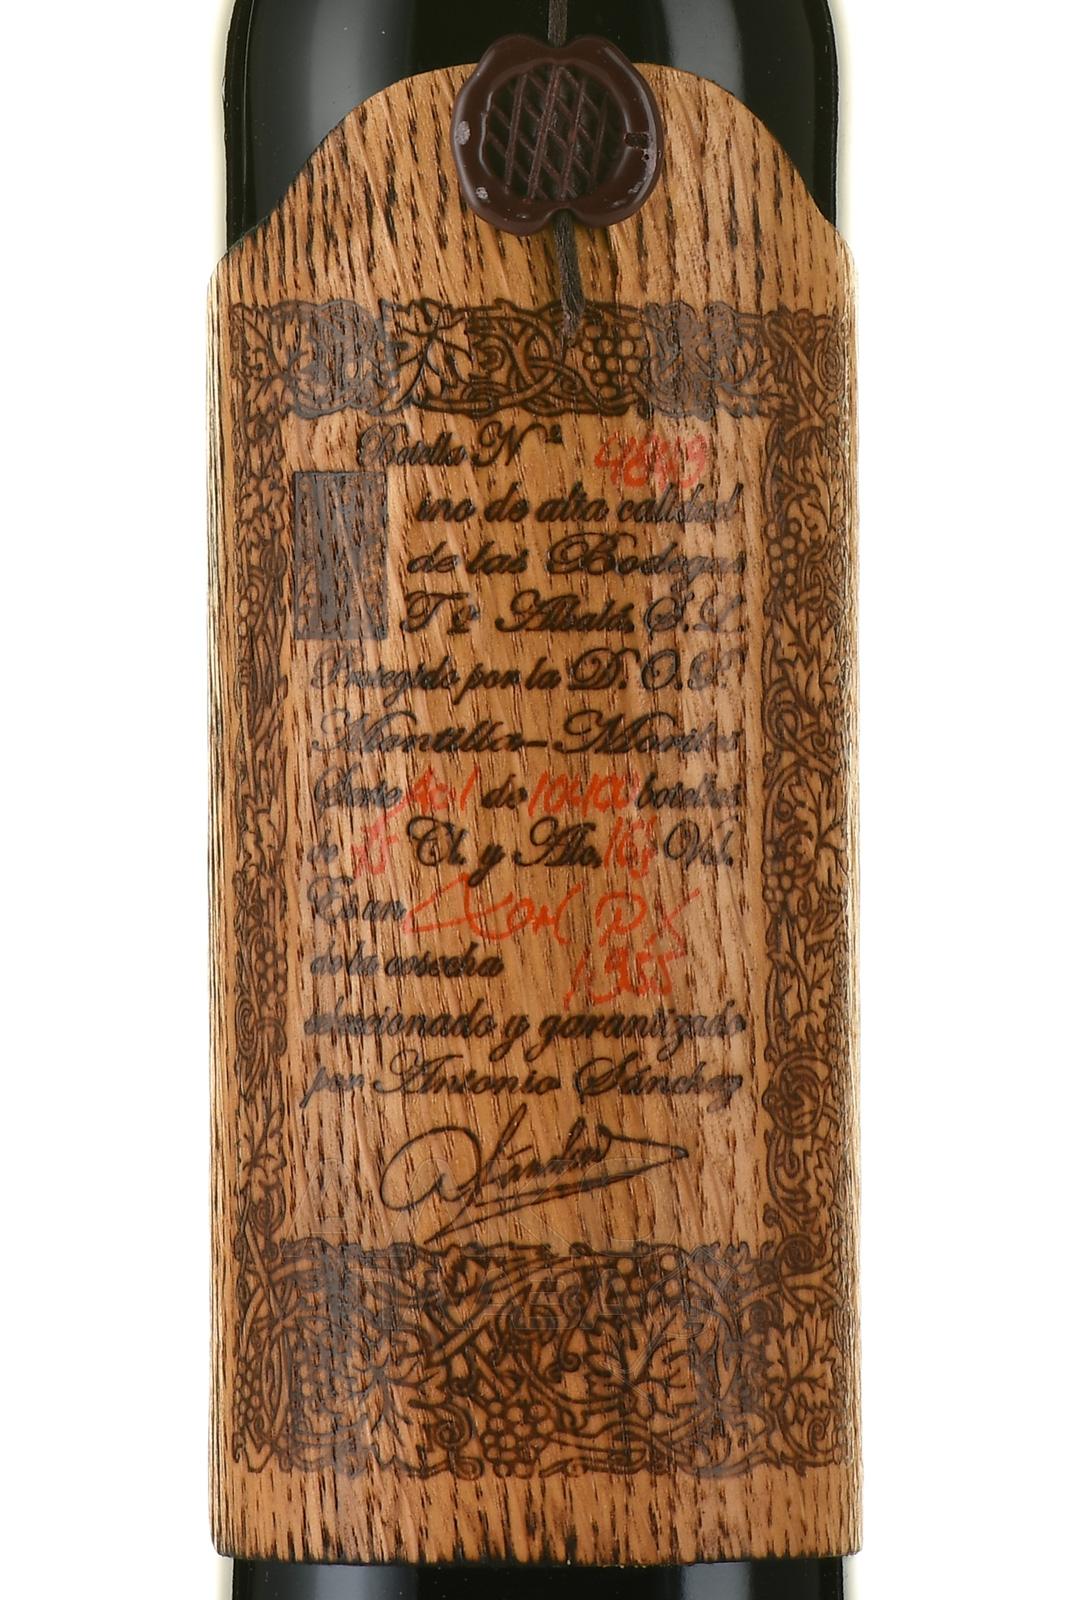 Botella Nº 4843
Vino de alta calidad
de las Bodegas
Tº Albalá, S.L.
Protegido por la D.O.P.
Montilla-Moriles
Parte de 10400 botellas
de Cl. y Alc. Vol.
Es un Don P.X
de la cosecha 1.955
seleccionado y garantizado
por Antonio Sánchez